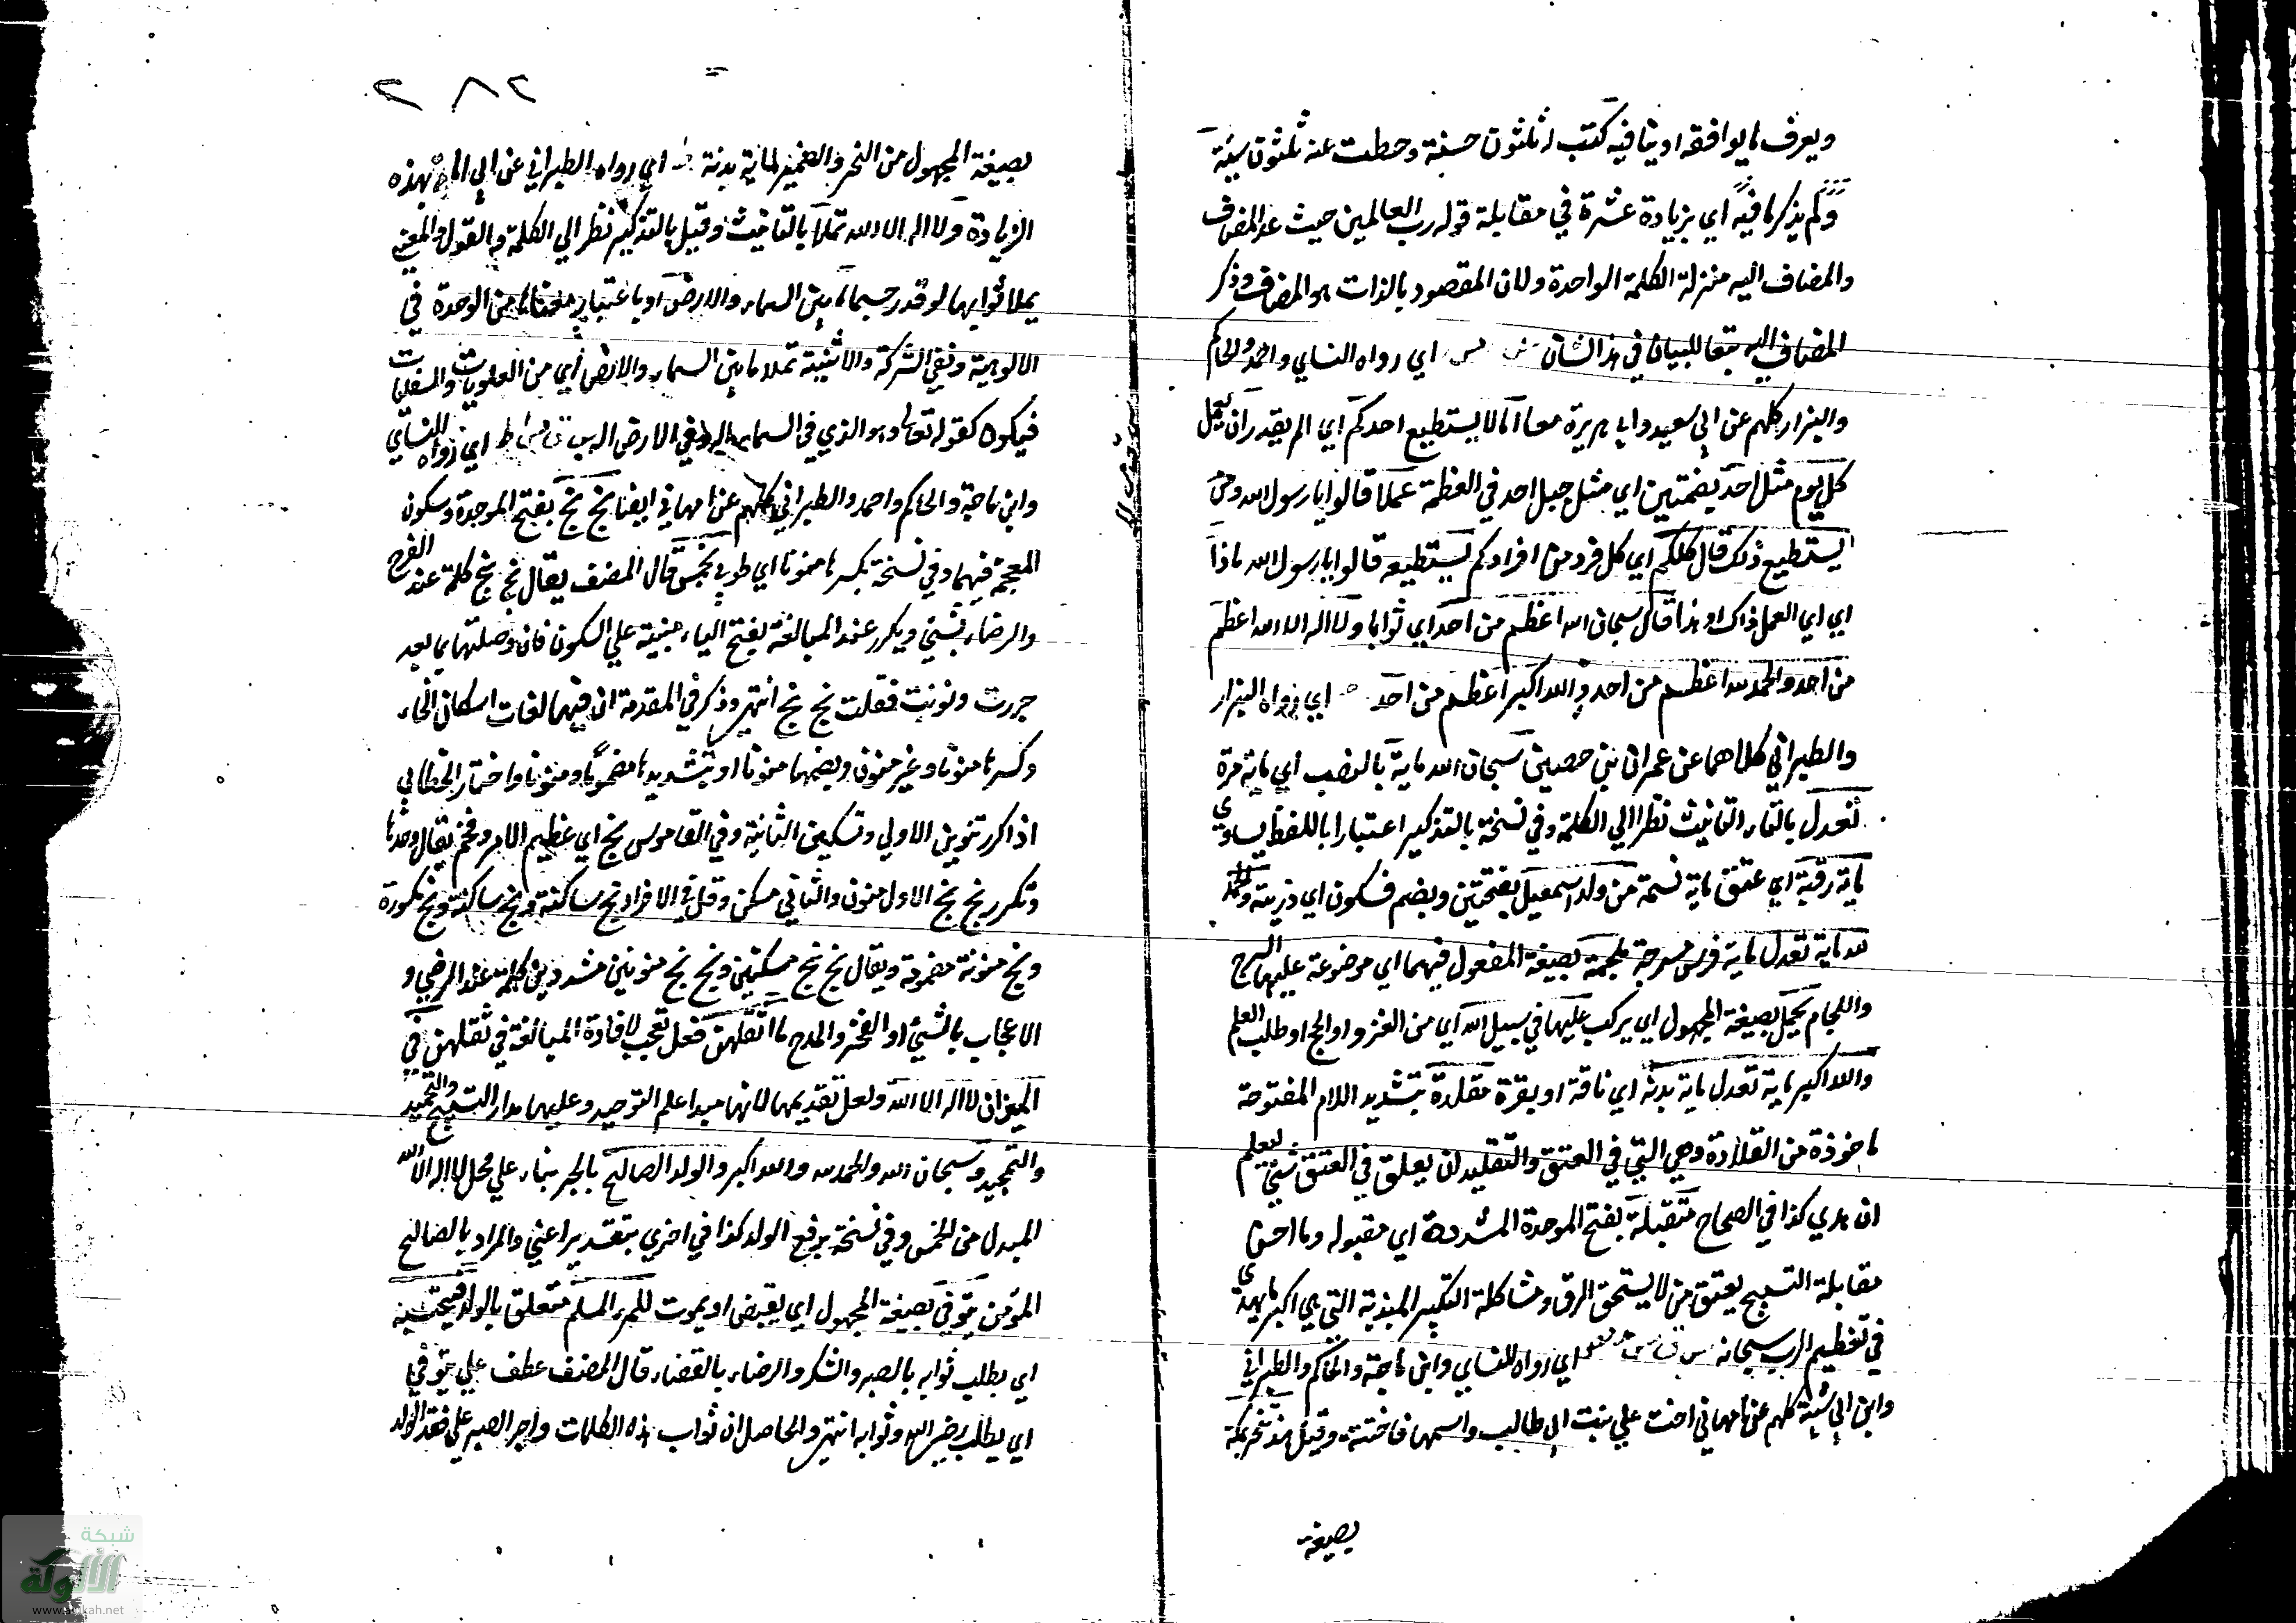 ويعرف ما يوافقه او ينافيه كتب له ثلثون حسنة وحطت عنه ثلثون سيئة
ولم يذكر ما فيه اي بزيادة عشرة في مقابلة قوله رب العالمين حيث عد المضاف
والمضاف اليه منزلة الكلمة الواحدة ولان المقصود بالذات هو المضاف وذكر
المضاف اليه تبعا للبيان في هذا الشان س اي رواه النساي واحمد والحاكم
والبزار كلهم عن ابي سعيد وابي هريرة معا اما لا يستطيع احدكم اي الم يقدر ان يعمل
كل يوم مثل احد بضمتين اي مثل جبل احد في العظمة عملا قالوا يا رسول الله ومن
يستطيع ذلك قال كلكم اي كل فرد من افرادكم يستطيعه قالوا يا رسول الله ماذا
اي اي العمل ذاك او هذا قال سبحان الله اعظم من احد اي ثوابا ولا اله الا الله اعظم
من احد والحمد لله اعظم من احد والله اكبر اعظم من احد اي رواه البزار
والطبراني كلاهما عن عمران بن حصين سبحان الله ماية بالنصب اي ماية مرة
تعدل بالتاء التانيث نظرا الي الكلمة وفي نسخة بالتذكير اعتبارا باللفظ يساوي
ماية رقبة اي عتق ماية نسمة من ولد اسمعيل بفتحتين وبضم فسكون اي ذريته والحمد
لله ماية تعدل ماية فرس مسرجة ملجمة بصيغة المفعول فيهما اي موضوعة عليهما السرج
واللجام يحمل بصيغة المجهول اي يركب عليها في سبيل الله اي من الغزو او الحج او طلب العلم
والله اكبر ماية تعدل ماية بدنة اي ناقة او بقرة مقلدة بتشديد اللام المفتوحة
ماخوذة من القلادة وهي التي في العنق والتقليد ان يعلق في العنق شئ ليعلم
ان هدي كذا في الصحاح متقبلة بفتح الموحدة المشددة اي مقبوله وما احسن
مقابلة التسبيح بعتق من لا يستحق الرق ومشاكلة التكبير المبدنة التي هي اكبر ما يهدي
في تعظيم الرب سبحانه س ق مس اي رواه النساي وابن ماجة والحاكم والطبراني
وابن ابي شيبة كلهم عن ام هاني اخت علي بنت ابي طالب واسمها فاختة وقيل هند تنحر بمكة
بصيغة
٢٨٢
بصيغة المجهول من النحر والضمير لماية بدنة ط اي رواه الطبراني عن ابي امامة بهذه
الزيادة ولا اله الا الله تملأ بالتانيث وقيل بالتذكير نظر الي الكلمة والقول والمعني
يملا ثوابها لو قدر جسما ما بين السماء والارض او باعتبار معناها من الوحدة في
الالوهية ونفي الشركة والاثنينية تملا ما بين السماء والارض اي من العلويات والسفليات
فيكون كقوله تعالي وهو الذي في السماء اله وفي الارض اله س ق مس ا ط اي رواه النساي
وابن ماجة والحاكم واحمد والطبراني كلهم عن ام هاني ايضا بخ بخ بفتح الموحدة وسكون
المعجمة فيهما وفي نسخة بكسرها منونا اي طوبي بخمس قال المصنف يقال بخ بخ كلمة عند الفرح
والرضاء بشئ ويكرر عند المبالغة بفتح الباء مبنية علي السكون فان وصلتها بما بعد
جررت ونونت فقلت بخ بخ انتهى وذكر في المقدمة ان فيهما لغات اسكان الخاء
وكسرها منونا وغير منون وبضمها منونا او بتشديدها مضموما ومنونا واختار الخطابي
اذا كرر تنوين الاولي وتسكين الثانية وفي القاموس بخ اي عظيم الامر وفخم يقال وحدها
وتكرر بخ بخ الاول منون والثاني مسكن وقل في الافراد بخ ساكنة وبخ ساكنة وبخ مكسورة
وبخ منونة مضمومة ويقال بخ بخ مسكنين وبخ بخ منونين مشددين كلمة عند الرضي و
الاعجاب بالشئ او الفخر والمدح ما اثقلهن فعل تعجب لافادة المبالغة في ثقلهن في
الميزان لا اله الا الله ولعل تقديمها لانها مبدا علم التوحيد وعليها مدار التسبيح والتحميد
والتمجيد وسبحان الله والحمد لله والله اكبر والولد الصالح بالجر بناء علي محل لا اله الا الله
المبدل من الخمس وفي نسخة برفع الولد كذا في اخري بتقدير اعني والمراد بالصالح
المؤمن يتوفي بصيغة المجهول اي يقبض او يموت للمرء المسلم متعلق بالولد فيحتسبه
اي يطلب ثوابه بالصبر والشكر والرضاء بالقضاء قال المصنف عطف علي يتوفي
اي يطلب رضي الله وثوابه انتهى والحاصل ان ثواب هذه الكلمات واجر الصبر علي فقد الولد
شبكة
الألوكة
www.alukah.net